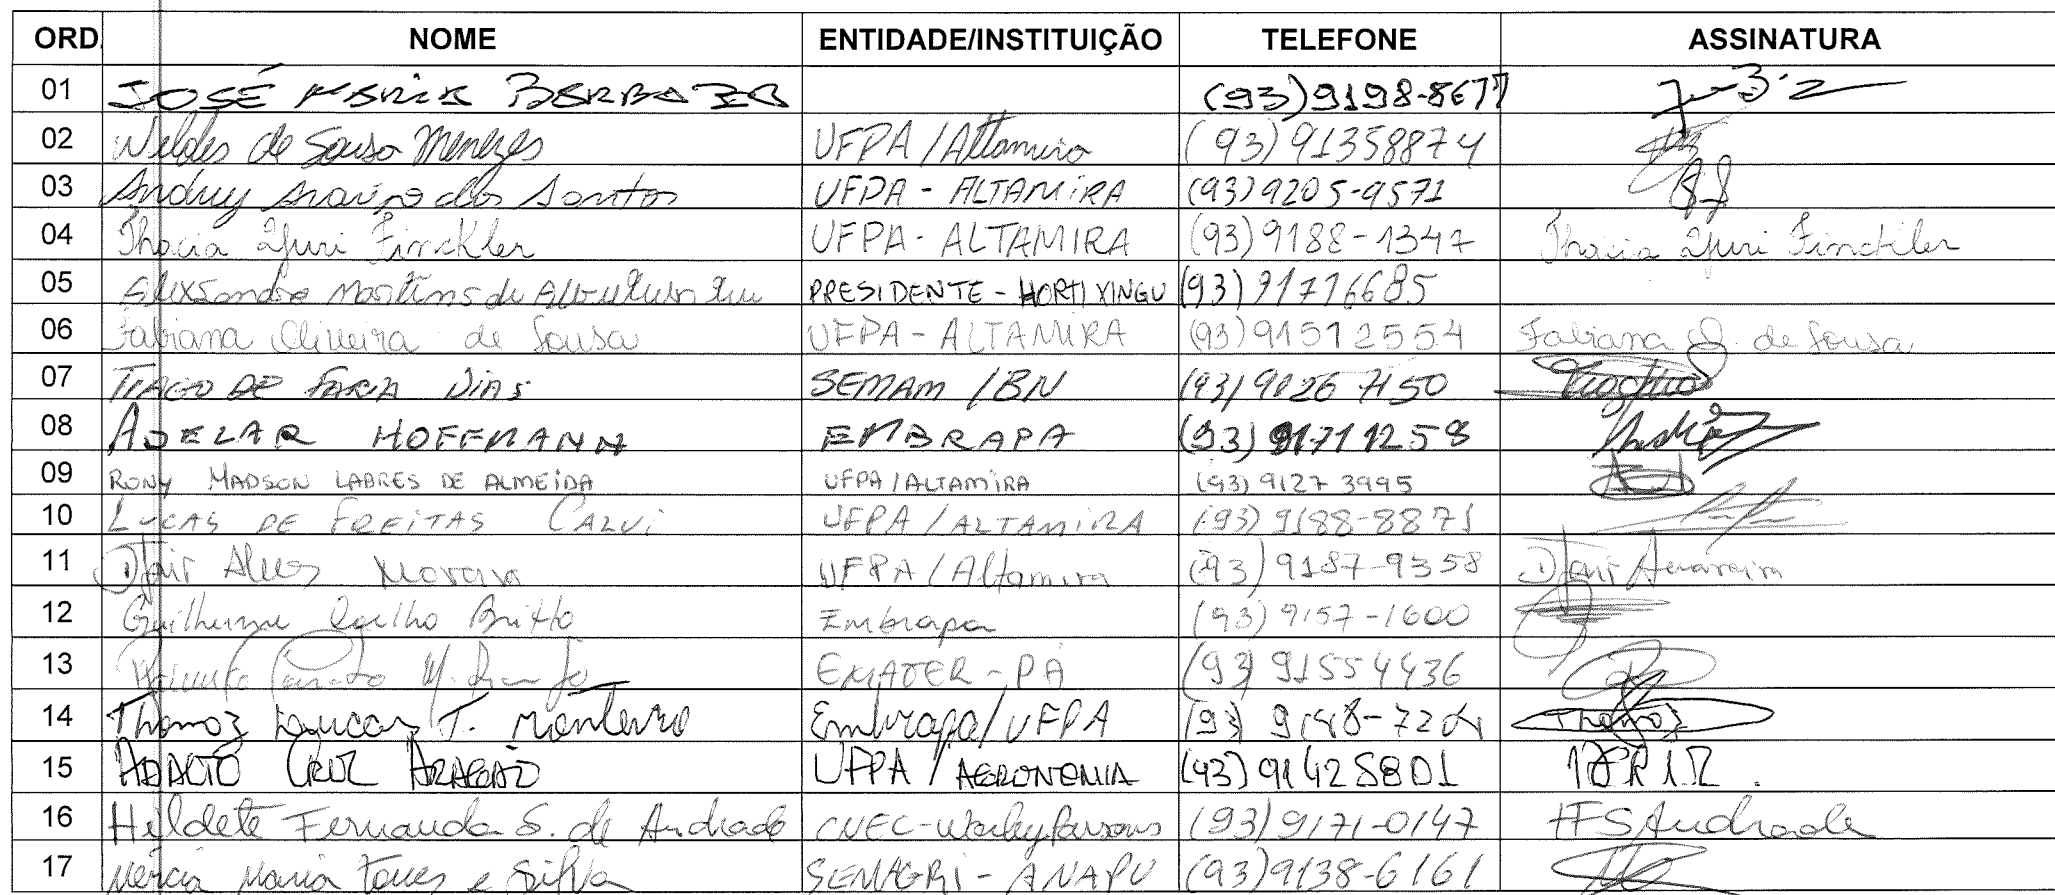 ORD. NOME ENTIDADE/INSTITUIÇÃO TELEFONE ASSINATURA
01 JOSÉ MARIA BARBOZA (93)9198-8677
02 Weldes de Sousa Menezes UFPA/Altamira (93)91358874
03 Andrey Araujo dos Santos UFPA - ALTAMIRA (93)9205-9571
04 Thacia Yuri Finckler UFPA - ALTAMIRA (93)9188-1347 Thacia Yuri Finckler
05 Martins de PRESIDENTE - HORTIXINGU (93)91716685
06 Fabiana Oliveira de Sousa UFPA - ALTAMIRA (93)91512554 Fabiana O. de Sousa
07 TIAGO DE FARIA DIAS SEMAM/BN (93)9126 7150
08 ADELAR HOFFMANN EMBRAPA (93)91711258
09 RONY MADSON LABRES DE ALMEIDA UFPA/ALTAMIRA (93)9127 3995
10 LUCAS DE FREITAS CALVI UFPA/ALTAMIRA (93)9188-8871
11 Alves Moreira UFPA/Altamira (93)9187-9358
12 Guilherme Coelho Britto Embrapa (93)9157-1600
13 M. EMATER - PA (93)91554436
14 Thomaz Luccas T. Monteiro Embrapa/UFPA (93) Thomaz
15 ADALTO CRUZ ARAGÃO UFPA/AGRONOMIA (93)91425801
16 Hildete Fernanda S. de Andrade CNEC-WorleyParsons (93)9171-0147 HFSAndrade
17 Mércia Maria Torres e Silva SEMAGRI - ANAPU (93)9138-6161